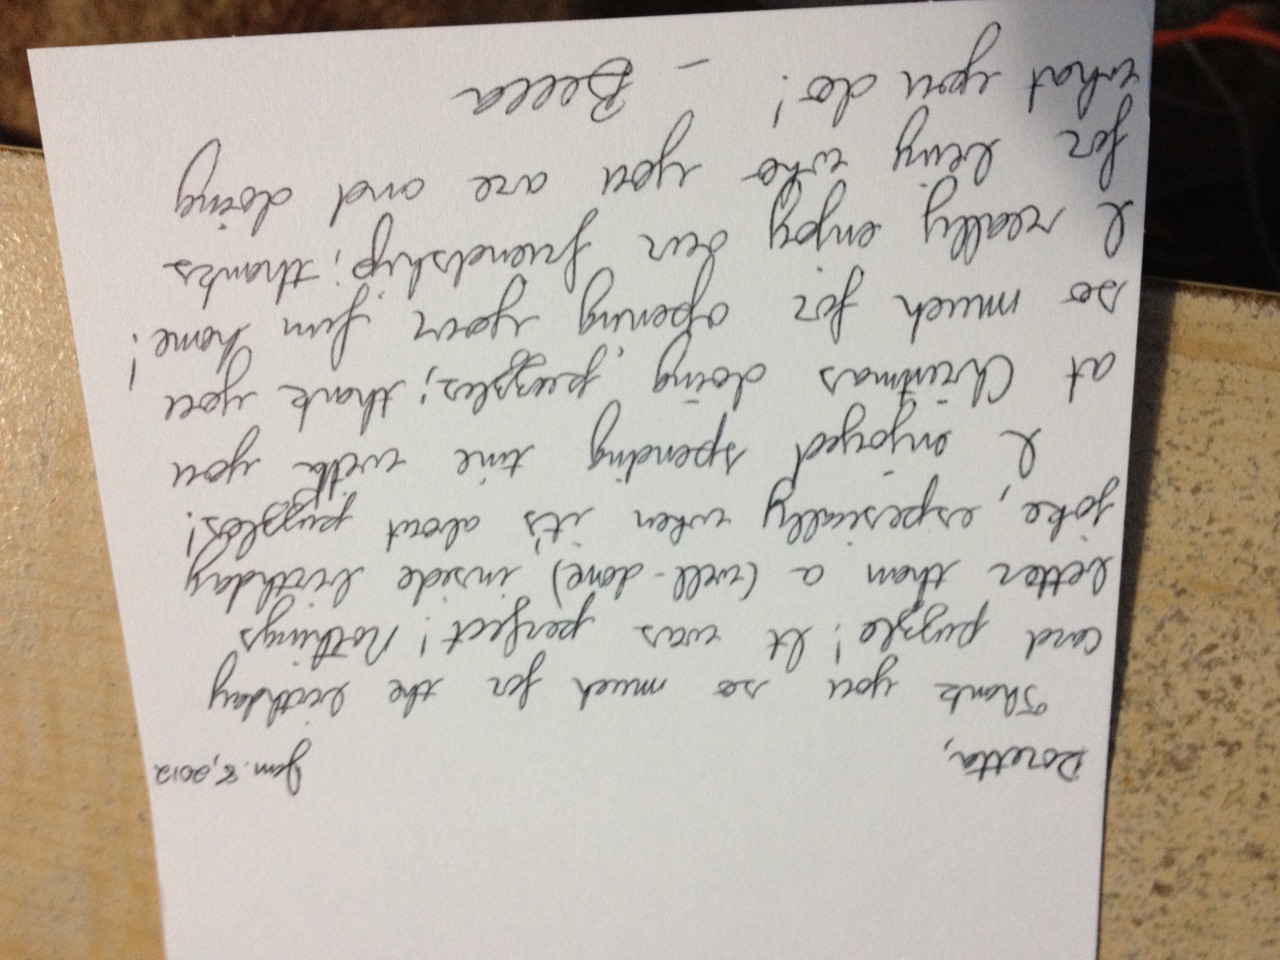 Doretta, Jan. 8, 2012
Thank you so much for the birthday
card puzzle! It was perfect! Nothings
better than a (well-done) inside birthday
joke, especially when it's about puzzles!
I enjoyed spending time with you
at Christmas doing puzzles; thank you
so much for opening your fun home!
I really enjoy our friendship; thanks
for being who you are and doing
what you do! - Becca